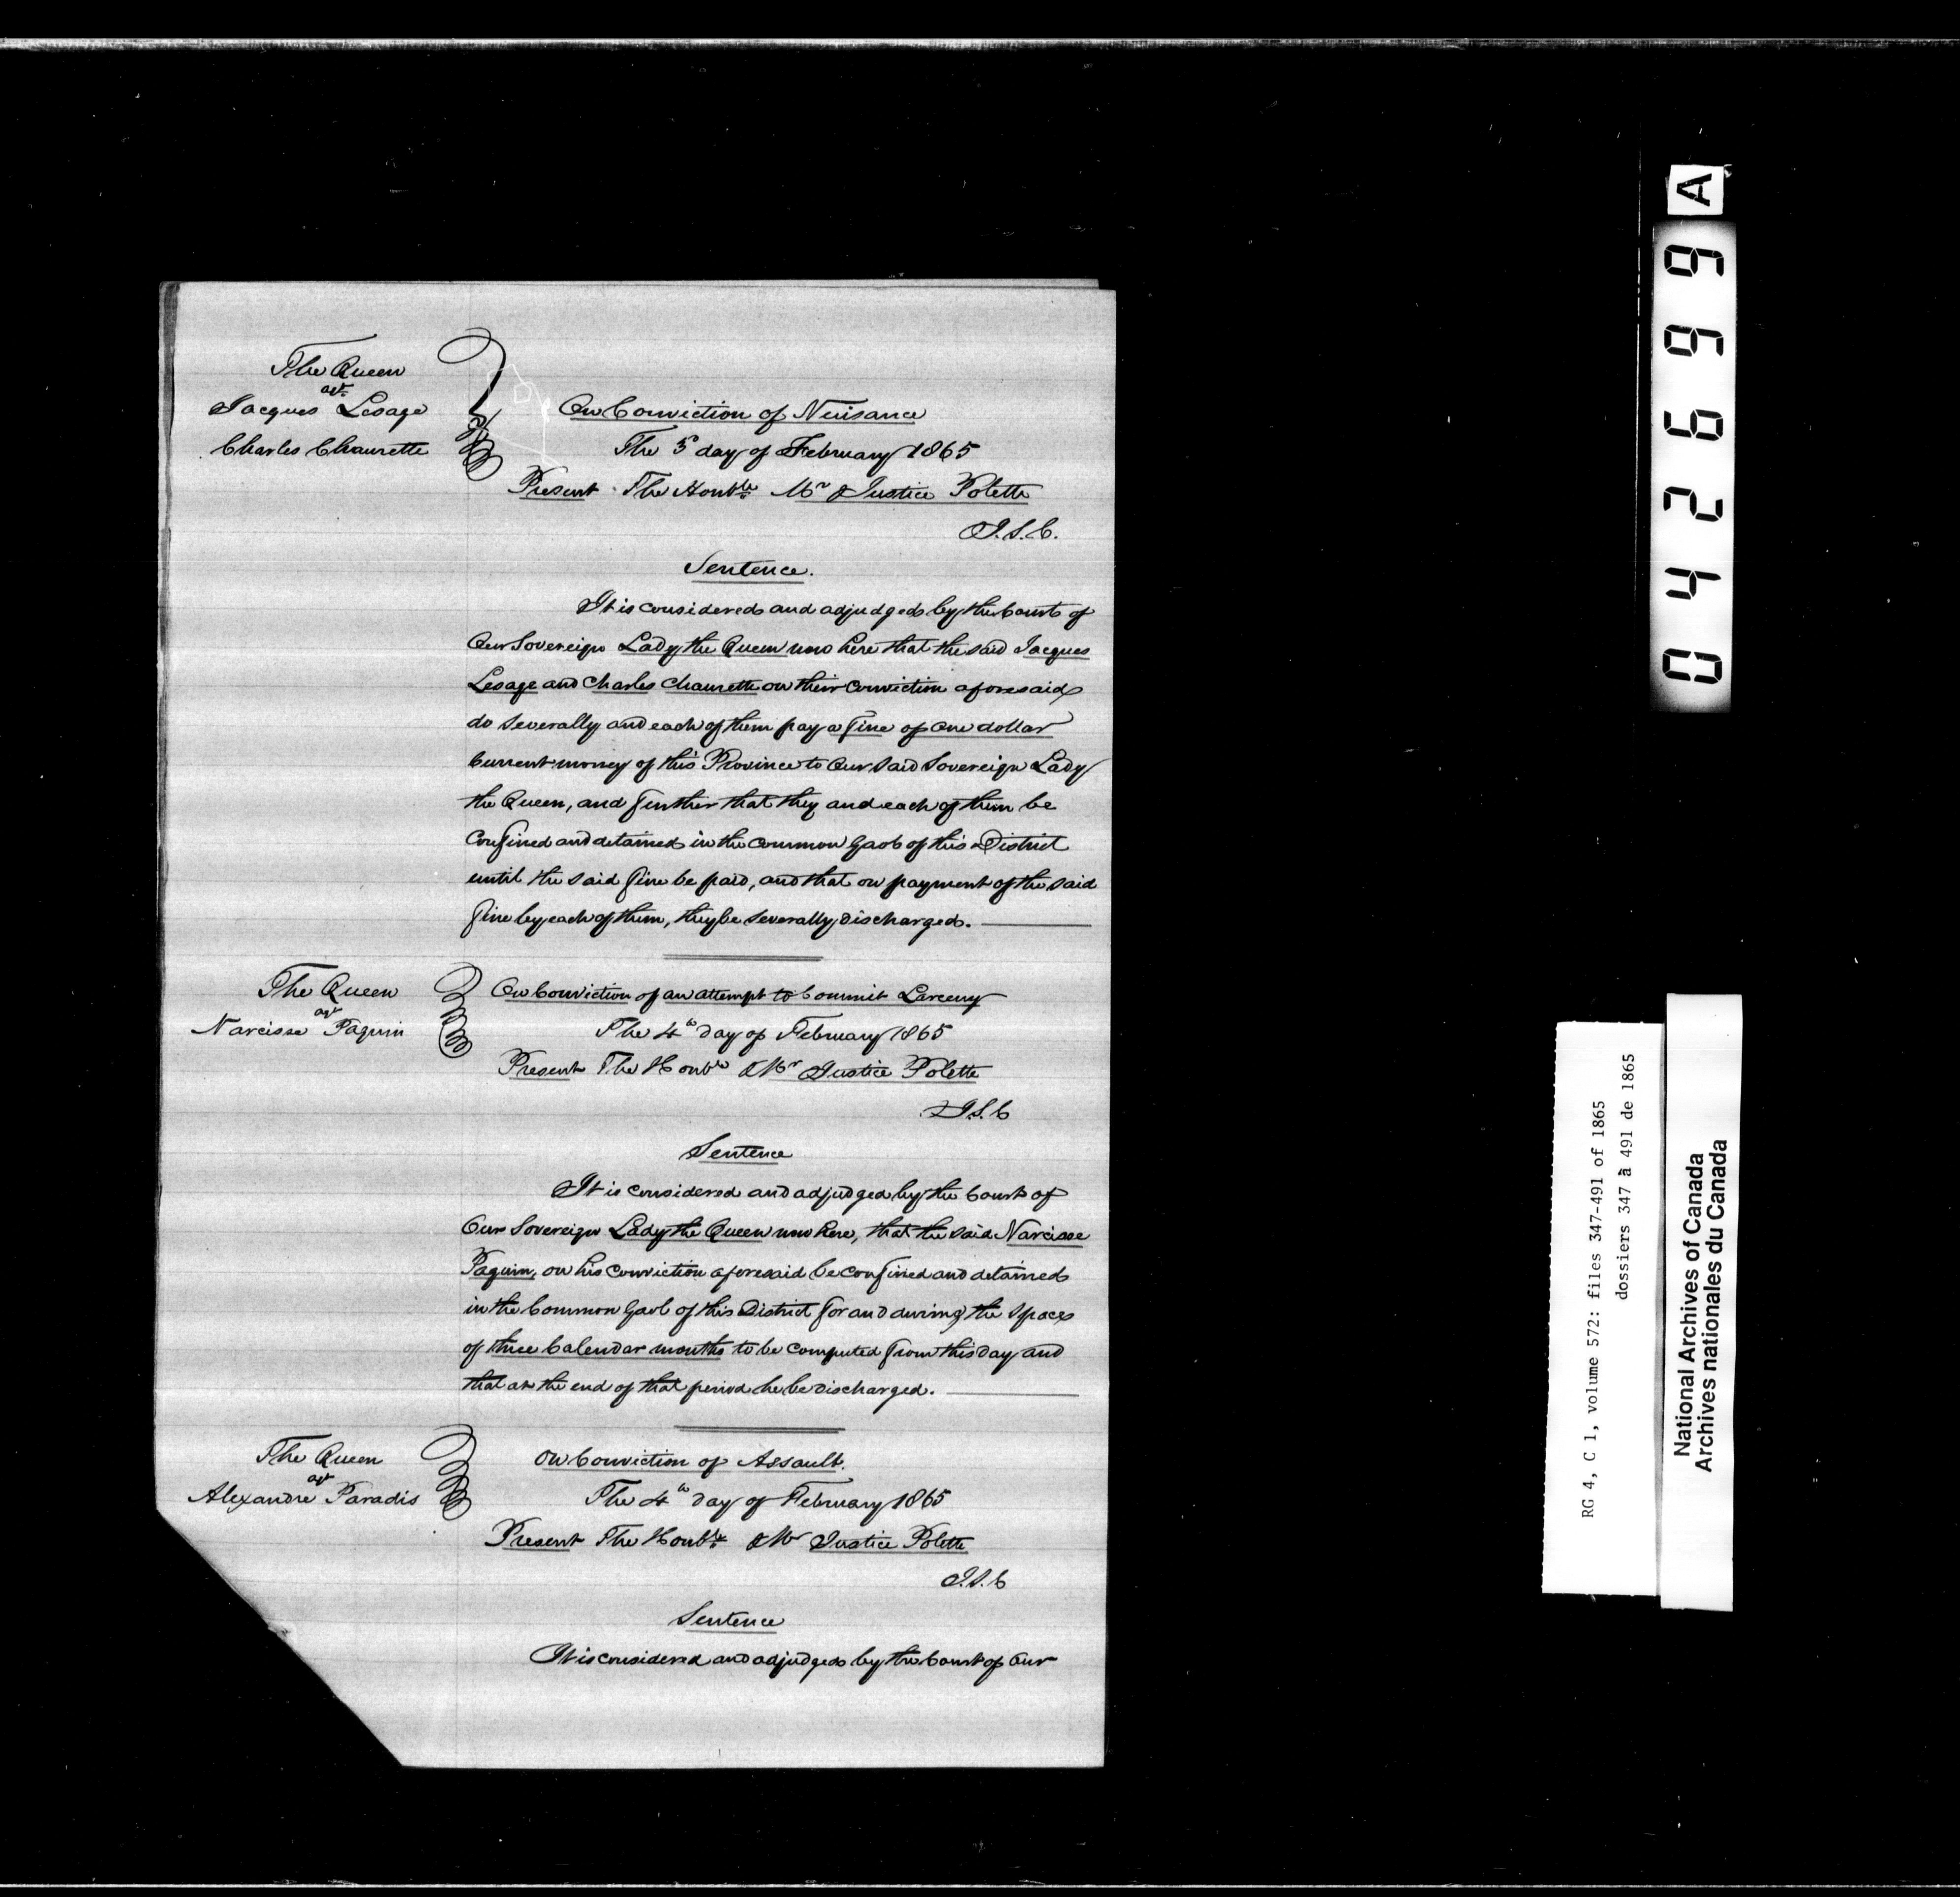 The Queen
agt
Jacques Lesage
Charles Chaurette
On Conviction of Nuisance
The 3d day of February 1865
Present The Honble Mr Justice Polette
J.S.C.
Sentence.
It is considered and adjudged by the Court of
Our Sovereign Lady the Queen now here that the said Jacques
Lesage and Charles Chaurette on their conviction aforesaid
do severally and each of them pay a fine of one dollar
Current money of this Province to Our Said Sovereign Lady
the Queen, and further that they and each of them be
confined and detained in the common Gaol of this District
until the said fine be paid, and that on payment of the said
fine by each of them, they be severally discharged.
The Queen
agt
Narcisse Paquin
On Conviction of an attempt to Commit Larceny
The 4th day of February 1865
Present The Honble Mr Justice Polette
J.S.C
Sentence
It is considered and adjudged by the Court of
Our Sovereign Lady the Queen now here, that the said Narcisse
Paquin, on his conviction aforesaid be confined and detained
in the Common Gaol of this District for and during the space
of three Calendar months to be computed from this day and
that at the end of that period he be discharged.
The Queen
agt
Alexandre Paradis
On Conviction of Assault.
The 4th day of February 1865
Present The Honble Mr Justice Polette
J.S.C
Sentence
It is considered and adjudged by the Court of Our
042699 A
RG 4, C 1, volume 572: files 347-491 of 1865
dossiers 347 à 491 de 1865
National Archives of Canada
Archives nationales du Canada